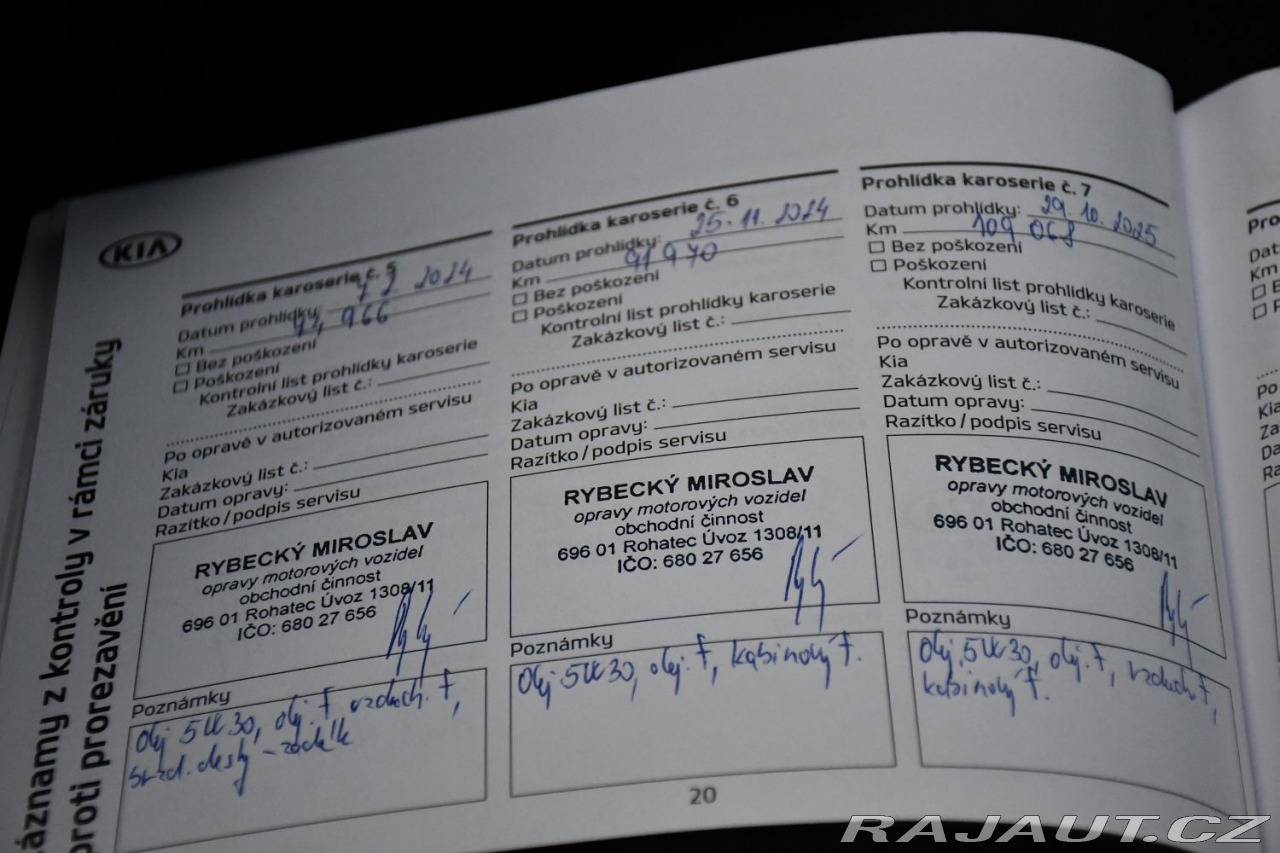 áznamy z kontroly v rámci záruky
proti prorezavění
KIA
Prohlídka karoserie č. 5
Datum prohlídky: 2024
Km 74 966
Bez poškození
Poškození
Kontrolní list prohlídky karoserie
Zakázkový list č.:
Po opravě v autorizovaném servisu
Kia
Zakázkový list č.:
Datum opravy:
Razítko / podpis servisu
RYBECKÝ MIROSLAV
opravy motorových vozidel
obchodní činnost
696 01 Rohatec Úvoz 1308/11
IČO: 680 27 656
Poznámky
Olej 5W30, olej. f, vzduch. f,
brzd. desky - zadní
Prohlídka karoserie č. 6
Datum prohlídky: 25. 11. 2024
Km 91 970
Bez poškození
Poškození
Kontrolní list prohlídky karoserie
Zakázkový list č.:
Po opravě v autorizovaném servisu
Kia
Zakázkový list č.:
Datum opravy:
Razítko / podpis servisu
RYBECKÝ MIROSLAV
opravy motorových vozidel
obchodní činnost
696 01 Rohatec Úvoz 1308/11
IČO: 680 27 656
Poznámky
Olej 5W30, olej. f, kabinový f.
Prohlídka karoserie č. 7
Datum prohlídky: 29. 10. 2025
Km 109 068
Bez poškození
Poškození
Kontrolní list prohlídky karoserie
Zakázkový list č.:
Po opravě v autorizovaném servisu
Kia
Zakázkový list č.:
Datum opravy:
Razítko / podpis servisu
RYBECKÝ MIROSLAV
opravy motorových vozidel
obchodní činnost
696 01 Rohatec Úvoz 1308/11
IČO: 680 27 656
Poznámky
Olej 5W30, olej. f, vzduch f,
kabinový f.
20
RAJAUT.CZ